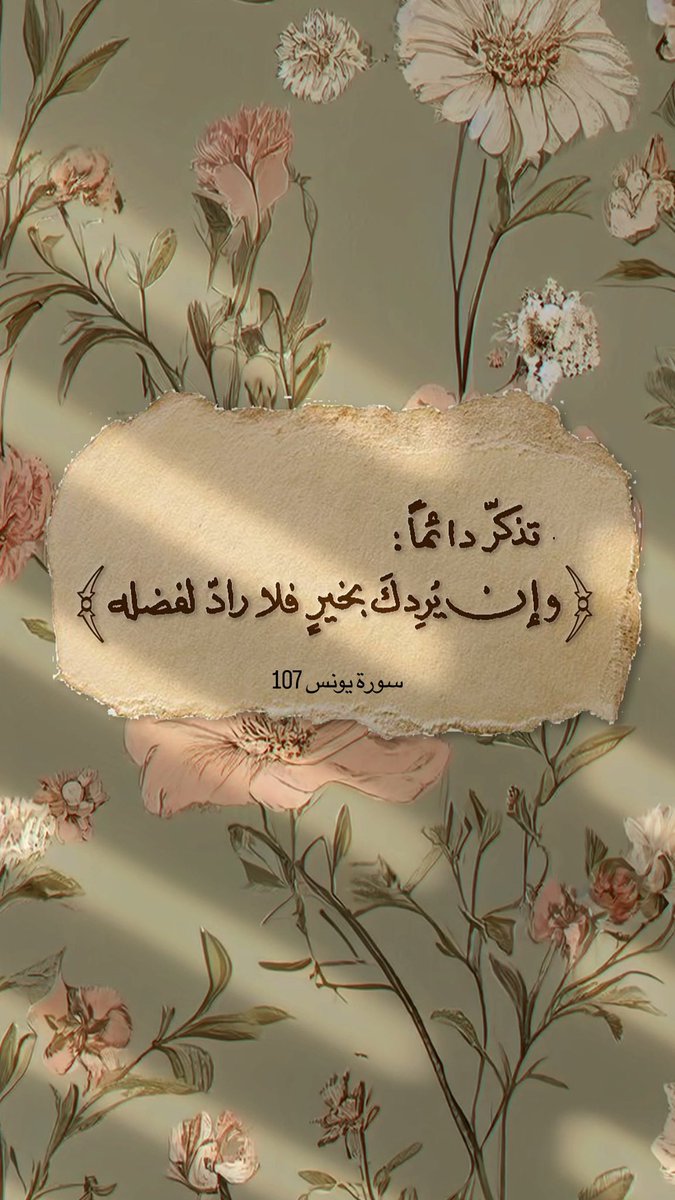 تذكّر دائماً :
﴿وإن يُرِدكَ بخيرٍ فلا رادّ لفضله﴾
سورة يونس 107